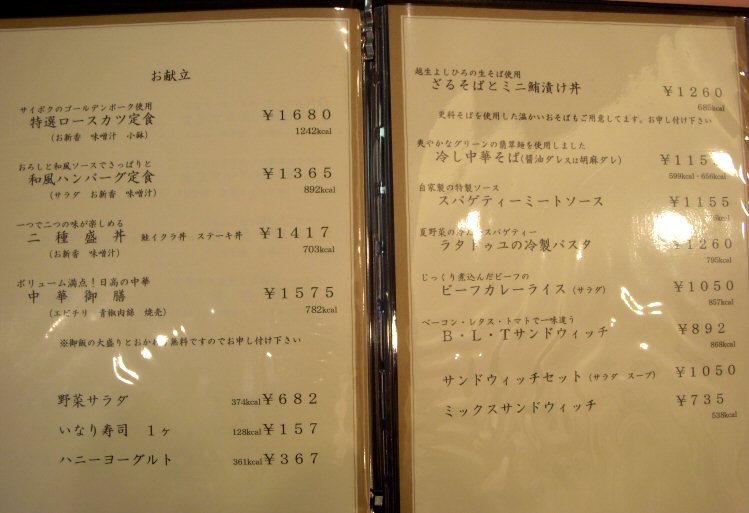 お献立
サイボクのゴールデンポーク使用
特選ロースカツ定食 ￥1680
(お新香 味噌汁 小鉢) 1242kcal
おろしと和風ソースでさっぱりと
和風ハンバーグ定食 ￥1365
(サラダ お新香 味噌汁) 892kcal
一つで二つの味が楽しめる
二種盛丼 鮭イクラ丼 ステーキ丼 ￥1417
(お新香 味噌汁) 703kcal
ボリューム満点！日高の中華
中華御膳 ￥1575
(エビチリ 青椒肉絲 焼売) 782kcal
※御飯の大盛りとおかわり無料ですのでお申し付け下さい
野菜サラダ 374kcal ￥682
いなり寿司 1ヶ 128kcal ￥157
ハニーヨーグルト 361kcal ￥367
越生よしひろの生そば使用
ざるそばとミニ鮪漬け丼 ￥1260
685kcal
更科そばを使用した温かいおそばもご用意してます。お申し付け下さい
爽やかなグリーンの翡翠麺を使用しました
冷し中華そば(醤油ダレスは胡麻ダレ) ￥115
599kcal・656kcal
自家製の特製ソース
スパゲティーミートソース ￥1155
kcal
夏野菜の冷たいスパゲティー
ラタトゥユの冷製パスタ ￥1260
795kcal
じっくり煮込んだビーフの
ビーフカレーライス (サラダ) ￥1050
857kcal
ベーコン・レタス・トマトで一味違う
B・L・Tサンドウィッチ ￥892
868kcal
サンドウィッチセット (サラダ スープ) ￥1050
ミックスサンドウィッチ ￥735
538kcal